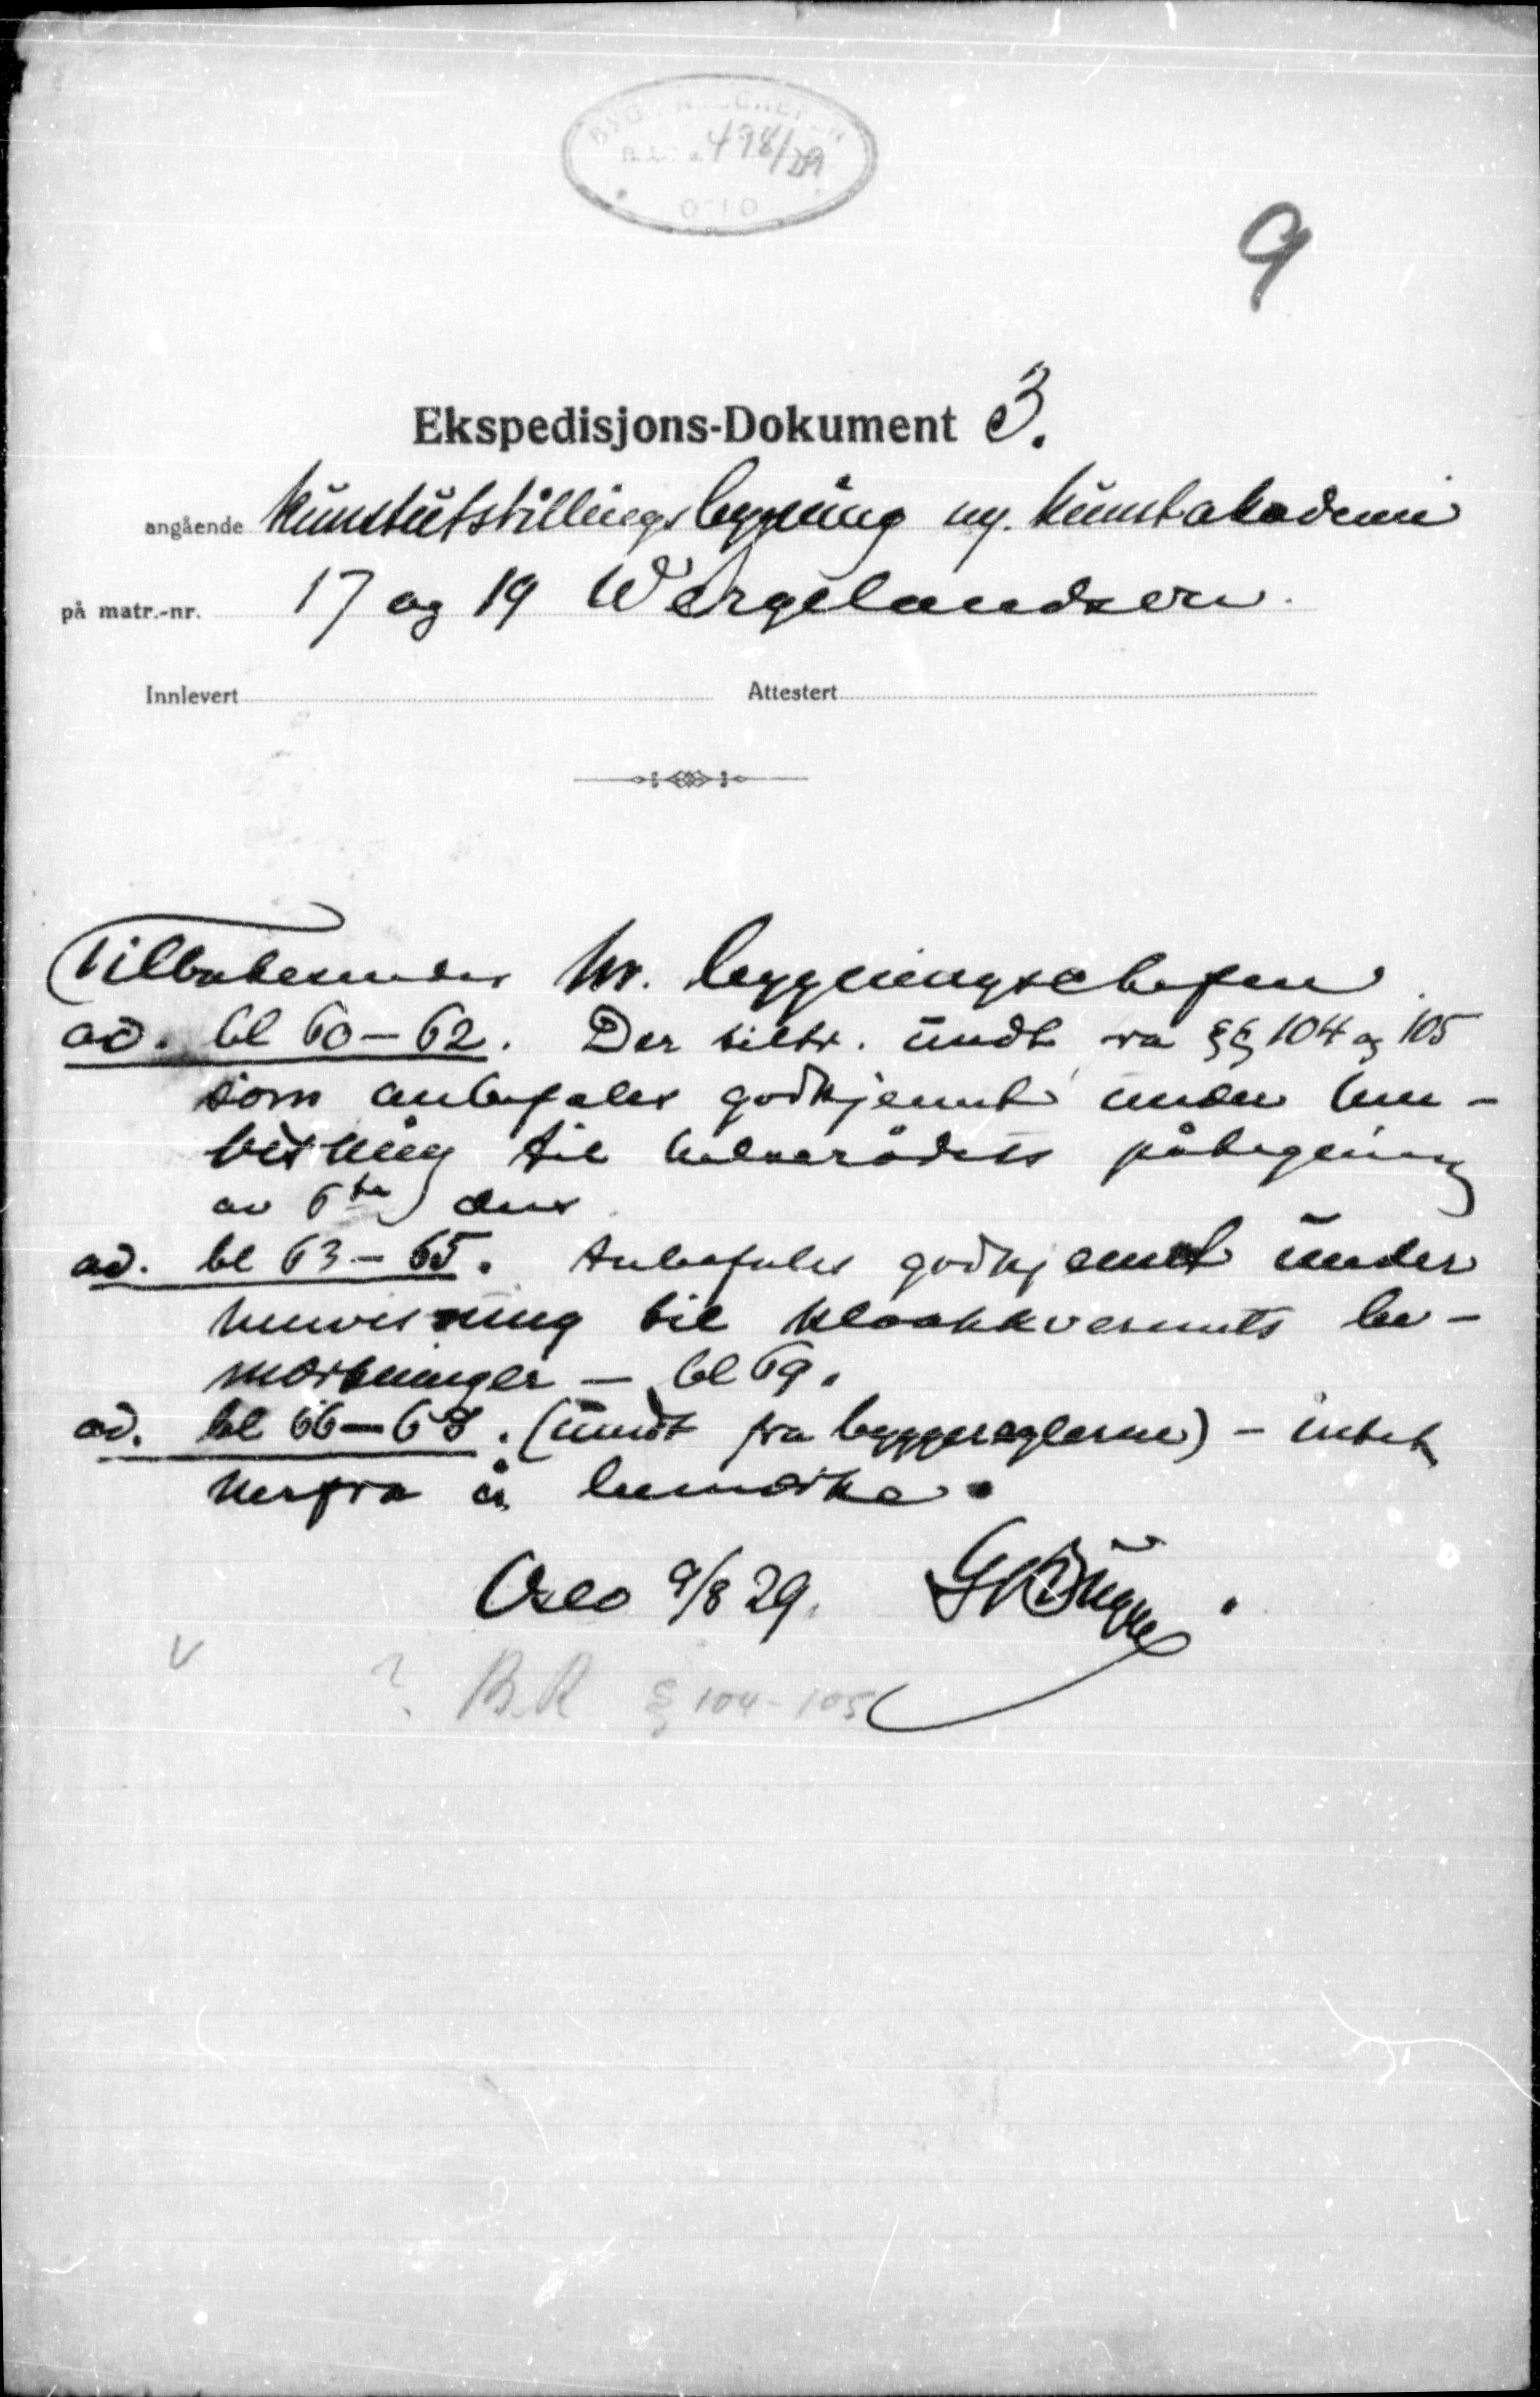 498/29
9
Ekspedisjons-Dokument 3.
angående Kunstutstillingsbygning og kunstakademi
på matr.-nr. 17 og 19 Wergelandsvn.
Innlevert Attestert
Tilbakesendes hr. bygningschefen.
ad. bl 60-62. Der tiltr. undt fra §§ 104 og 105
som anbefales godkjennt under hen-
visning til helserådets påtegning
av 6te ds.
ad. bl 63-65. Anbefales godkjennt under
henvisning til kloakkvesenets be-
merkninger - bl 69.
ad. bl 66-68. (undt fra byggereglerne) - intet
herfra å bemerke.
Oslo 9/8 29.
v
? B.R § 104-105